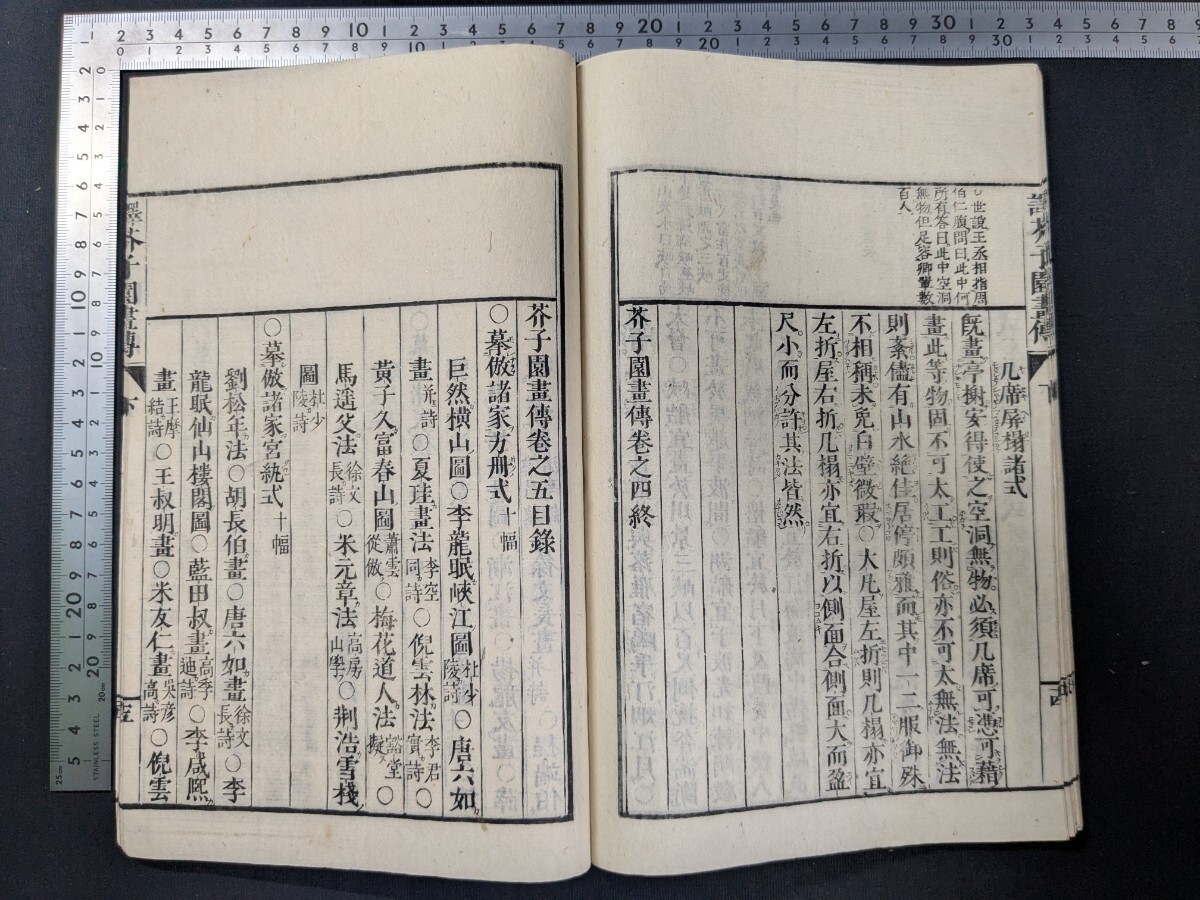 世說王丞相指周
伯仁腹問曰此中何
所有答曰此中空洞
無物但足容卿輩數
百人
几席屏搨諸式
既畫亭榭安得使之空洞無物必須几席可憑可藉
畫此等物固不可太工工則俗亦不可太無法無法
則紊儘有山水絶佳居停頗雅而其中一二服御殊
不相稱未免白璧微瑕○大凡屋左折則几榻亦宜
左折屋右折几榻亦宜右折以側面合側面大而盈
尺小而分許其法皆然
芥子園畫傳卷之四終
芥子園畫傳卷之五目錄
○摹倣諸家方冊式十幅
巨然橫山圖○李龍眠峽江圖杜少陵詩○唐六如
畫并詩○夏珪畫法李空同詩○倪雲林法李君實詩○
黃子久富春山圖蕭雲從倣○梅花道人法谿堂擬○
馬遥父法徐文長詩○米元章法高房山學○荆浩雪棧
圖杜少陵詩
○摹倣諸家宮紈式十幅
劉松年法○胡長伯畫○唐六如畫徐文長詩○李
龍眠仙山樓閣圖○藍田叔畫高季迪詩○李咸熙
畫王摩結詩○王叔明畫○米友仁畫吳彦高詩○倪雲
芥子園畫傳
下
芥子園畫傳
下